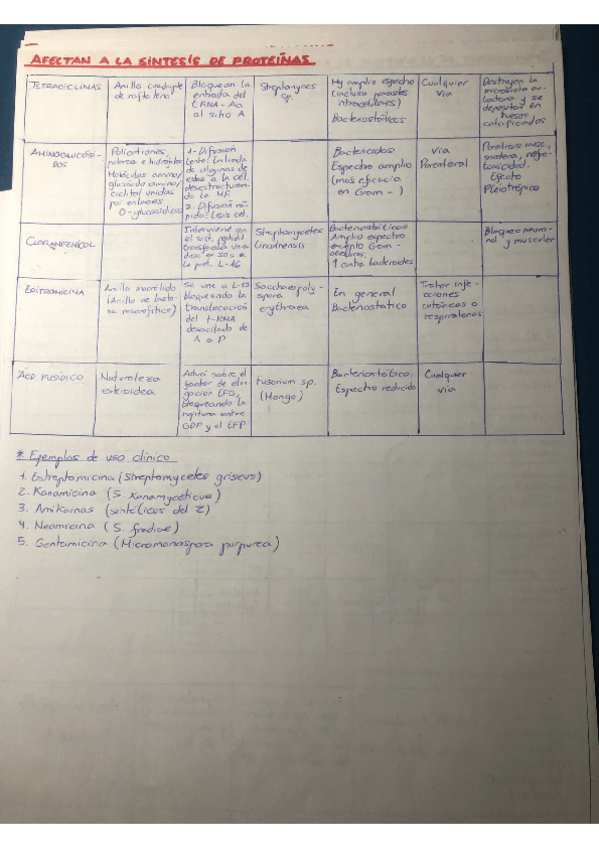 AFECTAN A LA SÍNTESIS DE PROTEÍNAS.
TETRACICLINAS
Anillo cuádruple
de nafta
Bloquean la
entrada del
tRNA-Aa
al sitio A
Streptomyces
sp.
Muy amplio espectro
(incluso parásitos
intracelulares)
Bacteriostáticos
Cualquier
Vía
Destruyen la
microbiota
y se
depositan en
calcificados
AMINOGLUCÓSI-
DOS
Policationes,
e hidrófilo
Moléculas amino/
glucósido amino/
ciclitol unidas
por enlaces
O-glucosídicos
1- Difusión
lenta: Entrada
de algunas de
estas a la cel.
desestructuran-
do la MP
2. Difusión rá-
pida: Lisis cel.
Bactericidas
Espectro amplio
(más eficacia
en Gram -)
Vía
Parenteral
Parálisis musc.,
sordera, nefro-
toxicidad.
Efecto
Pleiotrópico
CLORANFENICOL
Interviene en
el sist. peptidil
transferasa
a
la prot. L-16
Streptomyces
Lincolnensis
Bacteriostáticas
Amplio espectro
excepto Gram -
1 contra bacteroides
Bloqueo neuro-
nal y muscular
ERITROMICINA
Anillo macrólido
(Anillo de lacto-
na macrocítico)
Se une a L-15
bloqueando la
translocación
del t-RNA
desacilado de
A a P
Saccharopoly-
spora
erythraea
En general
Bacteriostático
Tratar infe-
cciones
cutáneas o
respiratorias
ÁCD. FUSÍDICO
Naturaleza
esteroidea
Actúa sobre el
factor de elon-
gación EFG,
bloqueando la
ruptura entre
GDP y el EFP
Fusarium sp.
(Hongo)
Bacteriostático.
Espectro reducido
Cualquier
vía
* Ejemplos de uso clínico
1. Estreptomicina (Streptomyces griseus)
2. Kanamicina (S. Kanamyceticus)
3. Amikainas (sintéticos del 2)
4. Neomicina (S. fradiae)
5. Gentamicina (Micromonospora purpurea)